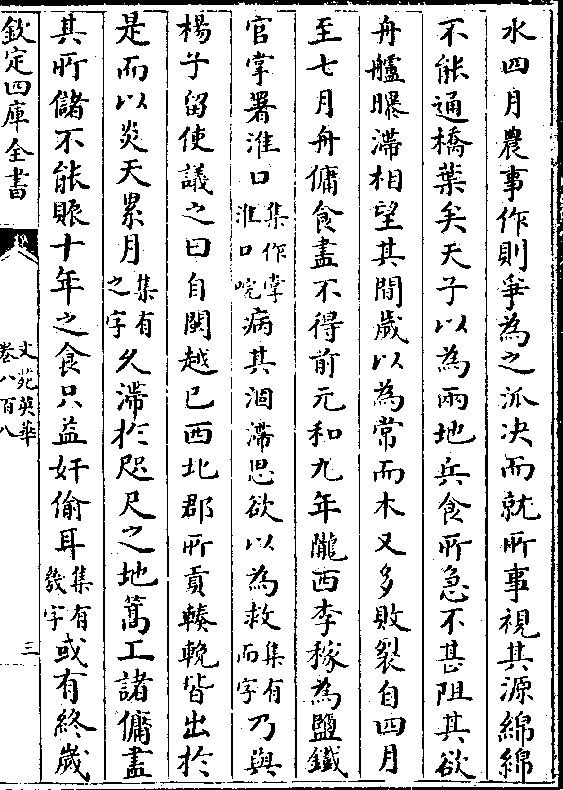 水四月農事作則爭為之泒決而就所事視其源綿綿
不能通橋葉矣天子以為兩地兵食所急不甚阻其欲
舟艫曝滯相望其間歲以為常而木又多敗裂自四月
至七月舟傭食盡不得前元和九年隴西李稼為鹽鐵
官掌署淮口集作掌淮口院病其涸滯思欲以為救集有而字乃與
楊子留使議之曰自閩越已西北郡所貢輳輓皆出於
是而以炎天累月集有之字久滯於咫尺之地篙工諸傭盡
其所儲不能賑十年之食只益奸偷耳集有幾字或有終歲
欽定四庫全書
文苑英華
卷八百八
三